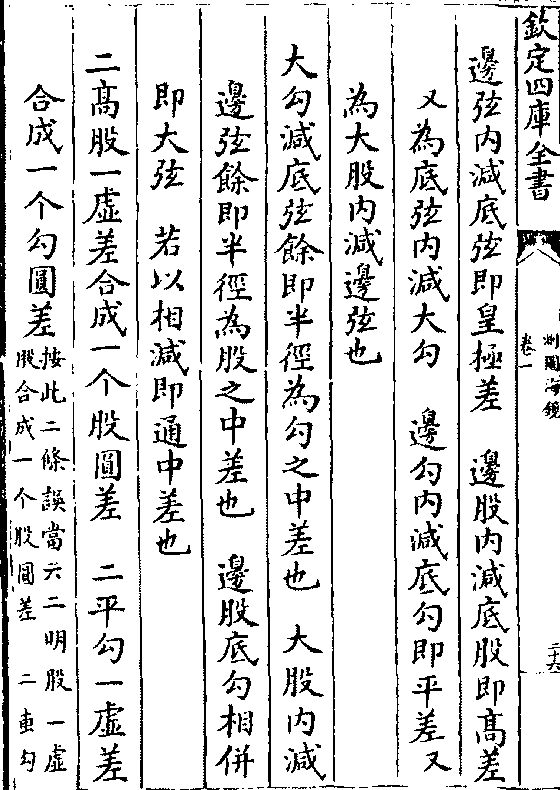 欽定四庫全書
測圓海鏡
卷一
二十六
邊弦内減底弦即皇極差　邊股内減底股即髙差
又為底弦内減大勾　邊勾内減底勾即平差又
為大股内減邊弦也
大勾減底弦餘即半徑為勾之中差也　大股内減
邊弦餘即半徑為股之中差也　邊股底勾相併
即大弦　若以相減即通中差也
二髙股一虚差合成一个股圓差　二平勾一虚差
合成一个勾圓差按此二條誤當云二明股一虚
股合成一个股圓差　二叀勾